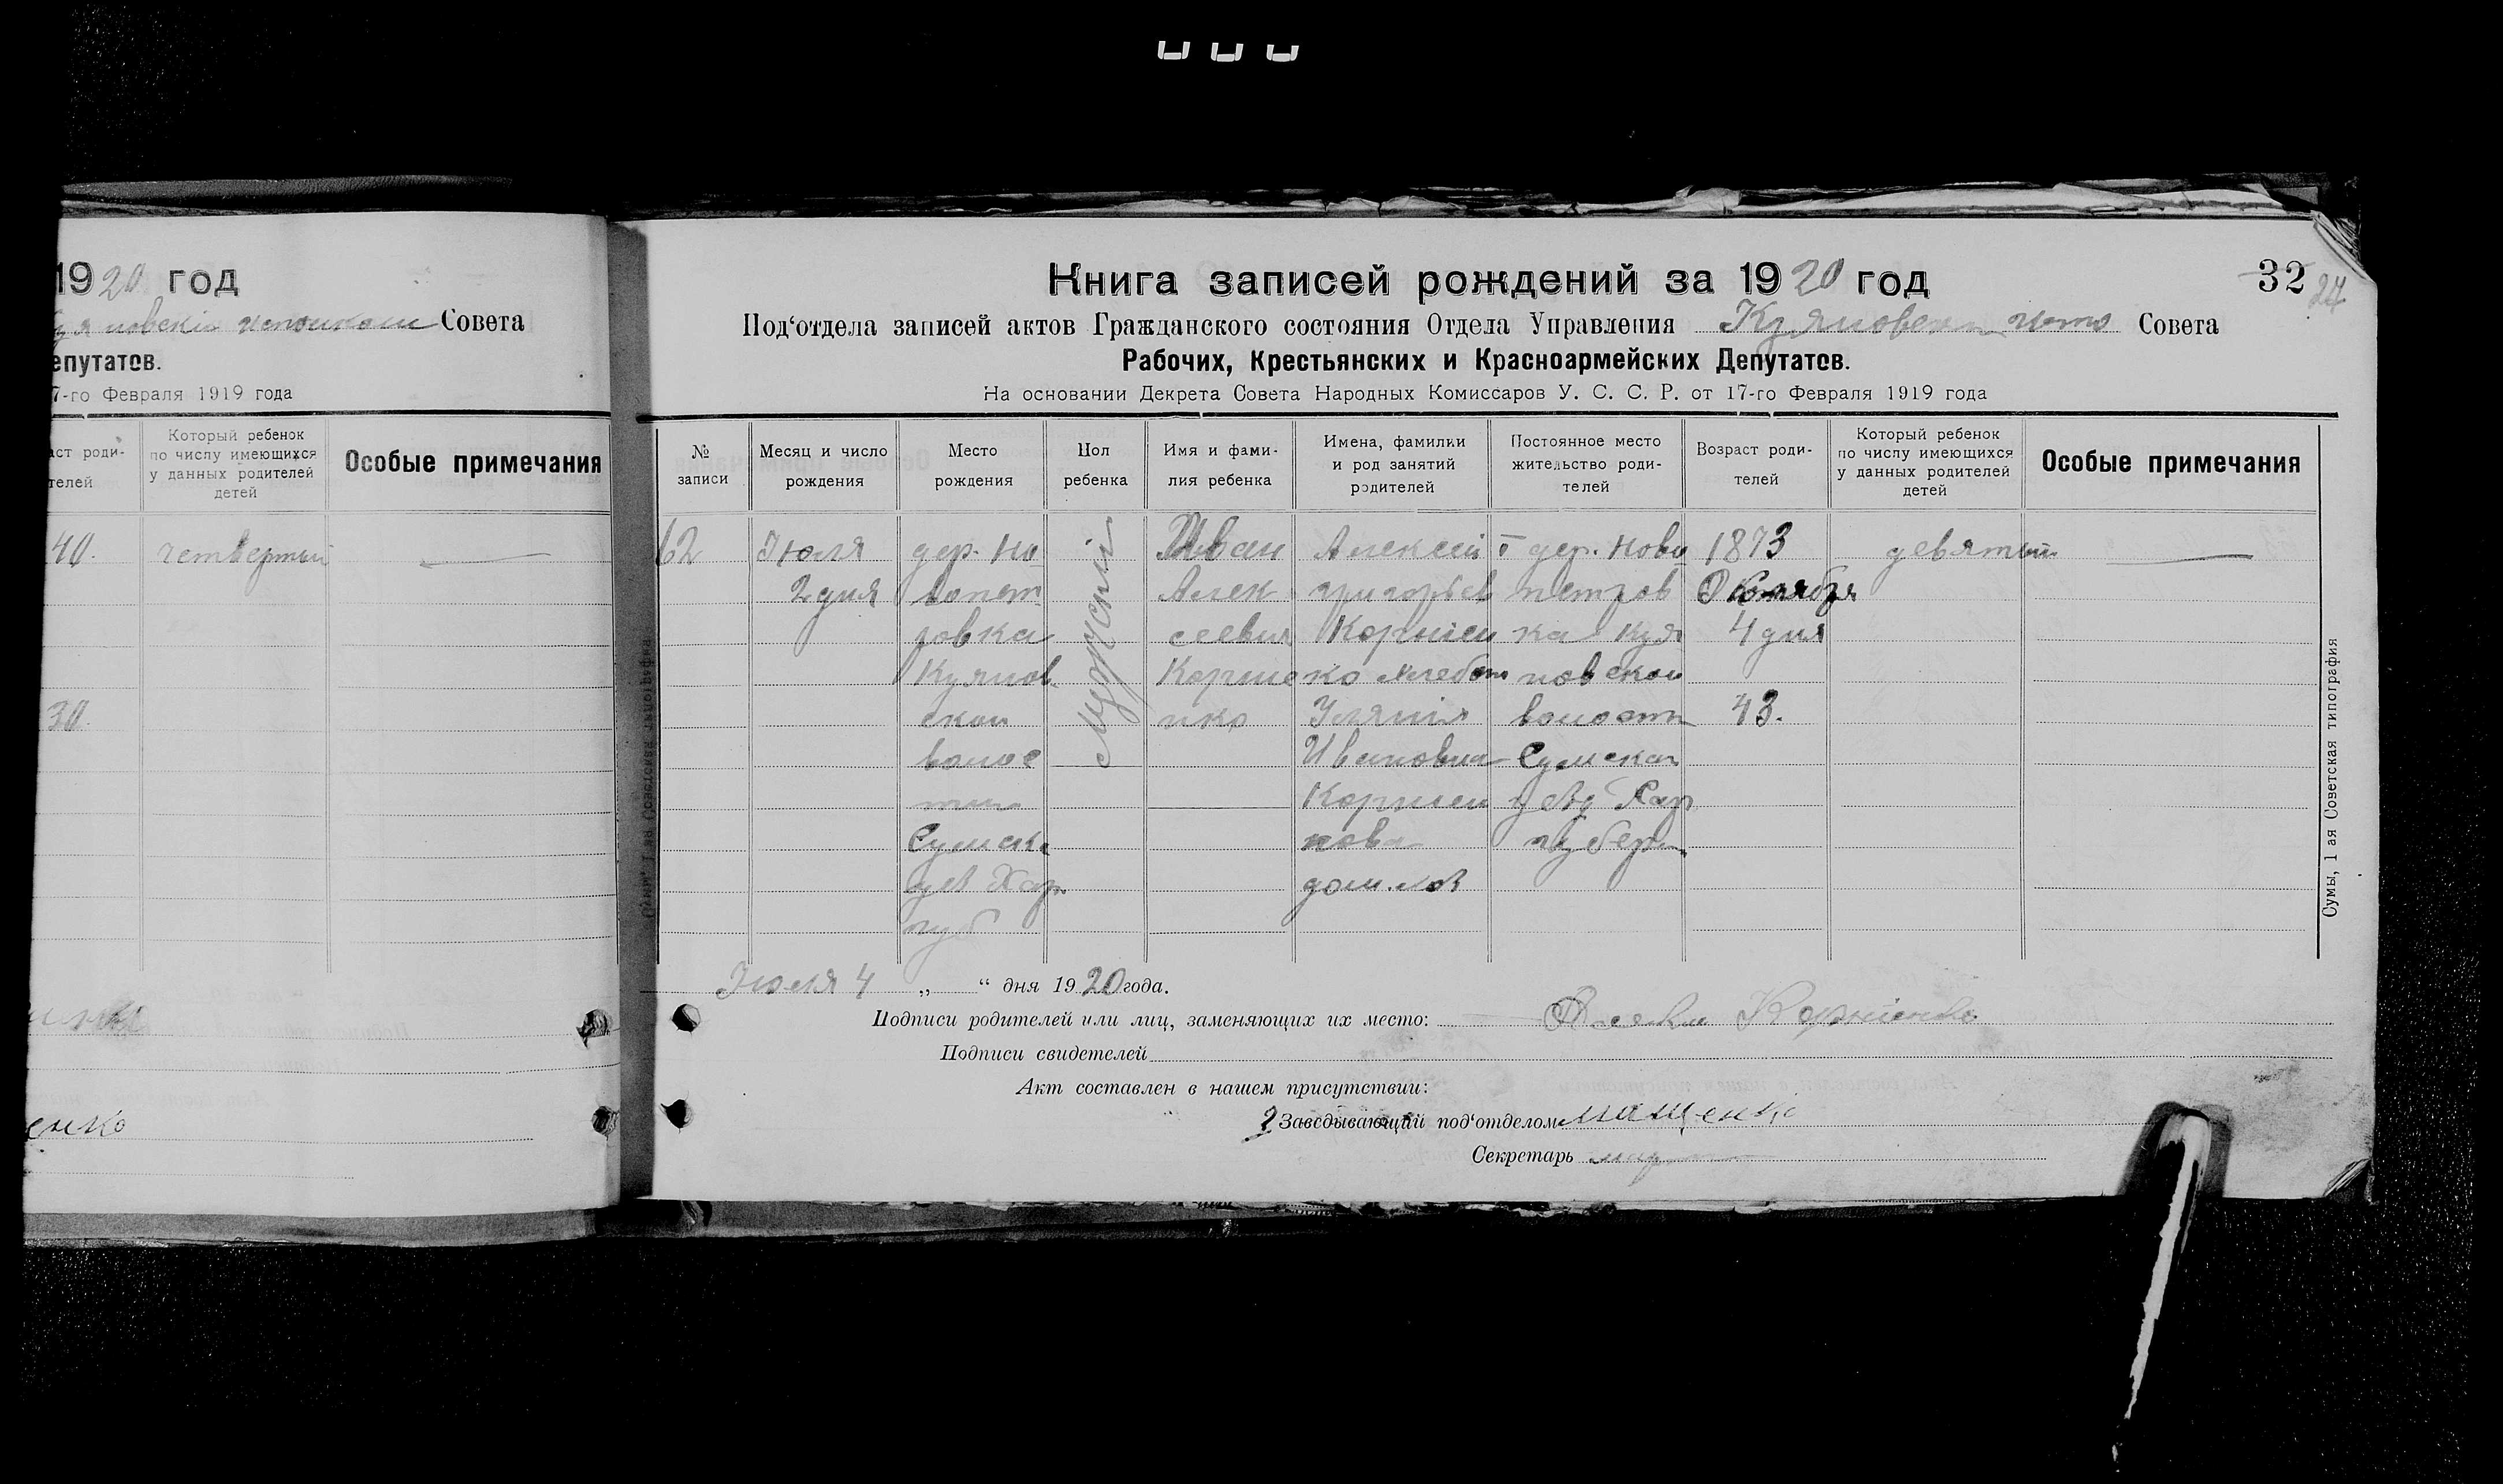 1920 год
Совета
епутатов.
7-го Февраля 1919 года
аст роди-
телей
Который ребенок
по числу имеющихся
у данных родителей
детей
Особые примечания
40. четвертый
30.
енко
Книга записей рождений за 1920 год
32
Под‘отдела записей актов Гражданского состояния Отдела Управления Совета
Рабочих, Крестьянских и Красноармейских Депутатов.
На основании Декрета Совета Народных Комиссаров У. С. С. Р. от 17-го Февраля 1919 года
№
записи
Месяц и число
рождения
Место
рождения
Пол
ребенка
Имя и фами-
лия ребенка
Имена, фамилии
и род занятий
родителей
Постоянное место
жительство роди-
телей
Возраст роди-
телей
Который ребенок
по числу имеющихся
у данных родителей
детей
Особые примечания
62
Июля
2 дня
дер. Но
вопет
ровка
Куянов
ской
волос
Сумск.
уез Хар.
губ
Мужской
Иван
Алек
сеевич
Корние
нко
Алексей
григорьев
Корниен
ко хлебоп
Ивановна
Корниен
кова
дом. хоз
дер. Нови
петров
ка Куя
новской
волости
Сумская
уезд Хар
губерн.
1873
Октября
4 дня
43.
девятый
Июля 4 „ “ дня 1920 года.
Подписи родителей или лиц, заменяющих их место: Корниенко
Подписи свидетелей
Акт составлен в нашем присутствии:
Заведывающий под‘отделом
Секретарь
Сумы, 1 ая Советская типография